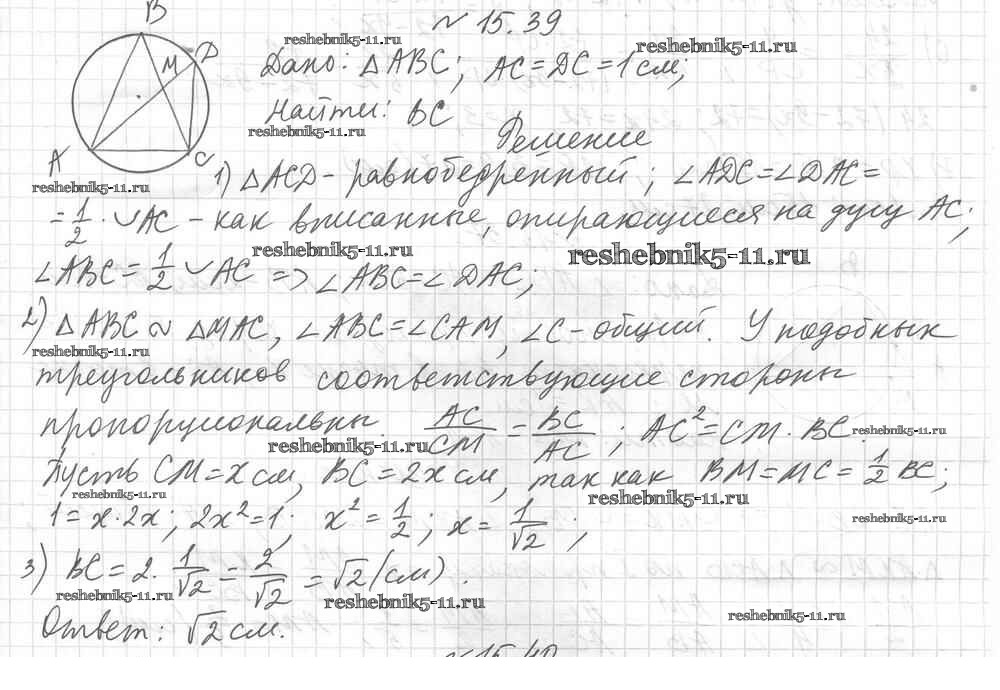 № 15.39
B
M D
A
C
reshebnik5-11.ru
reshebnik5-11.ru
Дано: △ABC; AC=DC=1см;
Найти: BC
reshebnik5-11.ru
Решение
reshebnik5-11.ru
1) △ACD - равнобедренный; ∠ADC=∠DAC=
= 1/2 · ◡AC - как вписанные, опирающиеся на дугу AC;
reshebnik5-11.ru
reshebnik5-11.ru
∠ABC = 1/2 ◡AC => ∠ABC=∠DAC;
2) △ABC ∾ △MAC, ∠ABC=∠CAM, ∠C - общий. У подобных
reshebnik5-11.ru
треугольников соответствующие стороны
пропорциональны. AC/CM = BC/AC; AC²=CM·BC.
reshebnik5-11.ru
reshebnik5-11.ru
Пусть CM=x см, BC=2x см, так как BM=MC=1/2 BC;
reshebnik5-11.ru
reshebnik5-11.ru
1=x·2x; 2x²=1; x²=1/2; x=1/√2;
reshebnik5-11.ru
3) BC=2·1/√2=2/√2=√2(см).
reshebnik5-11.ru
reshebnik5-11.ru
reshebnik5-11.ru
Ответ: √2 см.
№15.40